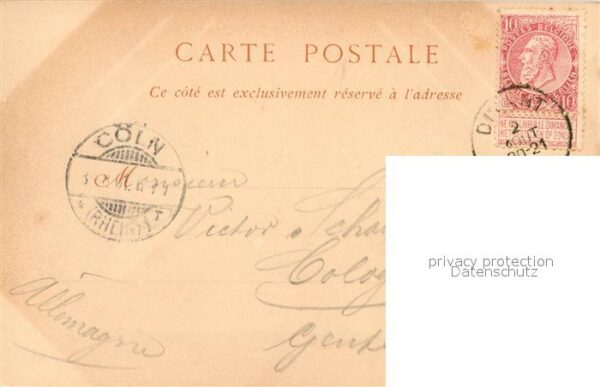 CARTE POSTALE
Ce côté est exclusivement réservé à l'adresse
10 POSTES BELGIQUE 10
NE PAS LIVRER LE DIMANCHE
DINANT
2
AOUT
20-21
CÖLN
(RHEIN)
Monsieur
Victor
Colog
Allemagne
privacy protection
Datenschutz